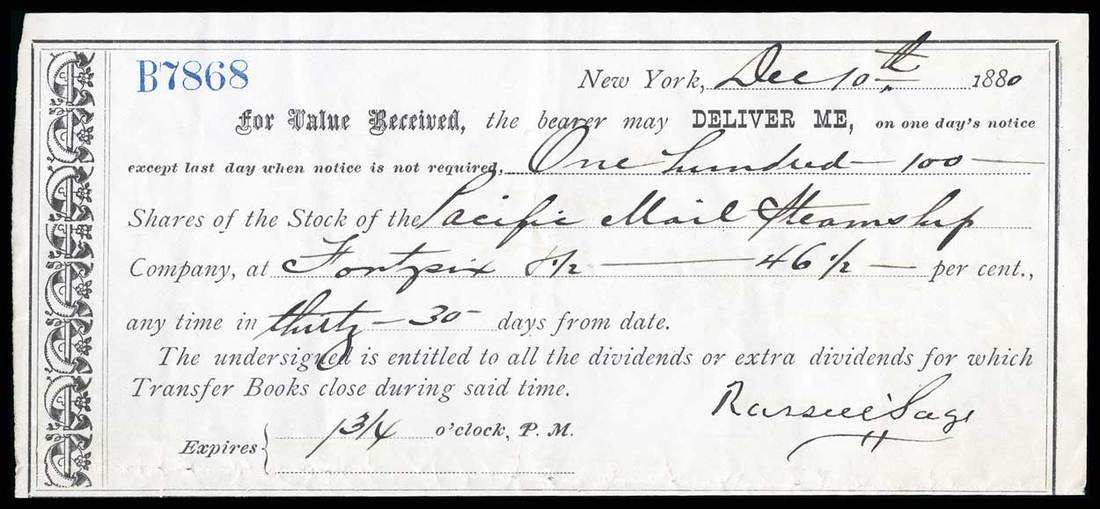 B7868
New York, Dec 10th 1880
For Value Received, the bearer may DELIVER ME, on one day's notice
except last day when notice is not required, One hundred 100
Shares of the Stock of the Pacific Mail Steamship
Company, at Fortysix 1/2 — 46 1/2 — per cent.,
any time in thirty - 30 - days from date.
The undersigned is entitled to all the dividends or extra dividends for which
Transfer Books close during said time.
Russell Sage
Expires { 1 3/4 o'clock, P. M.